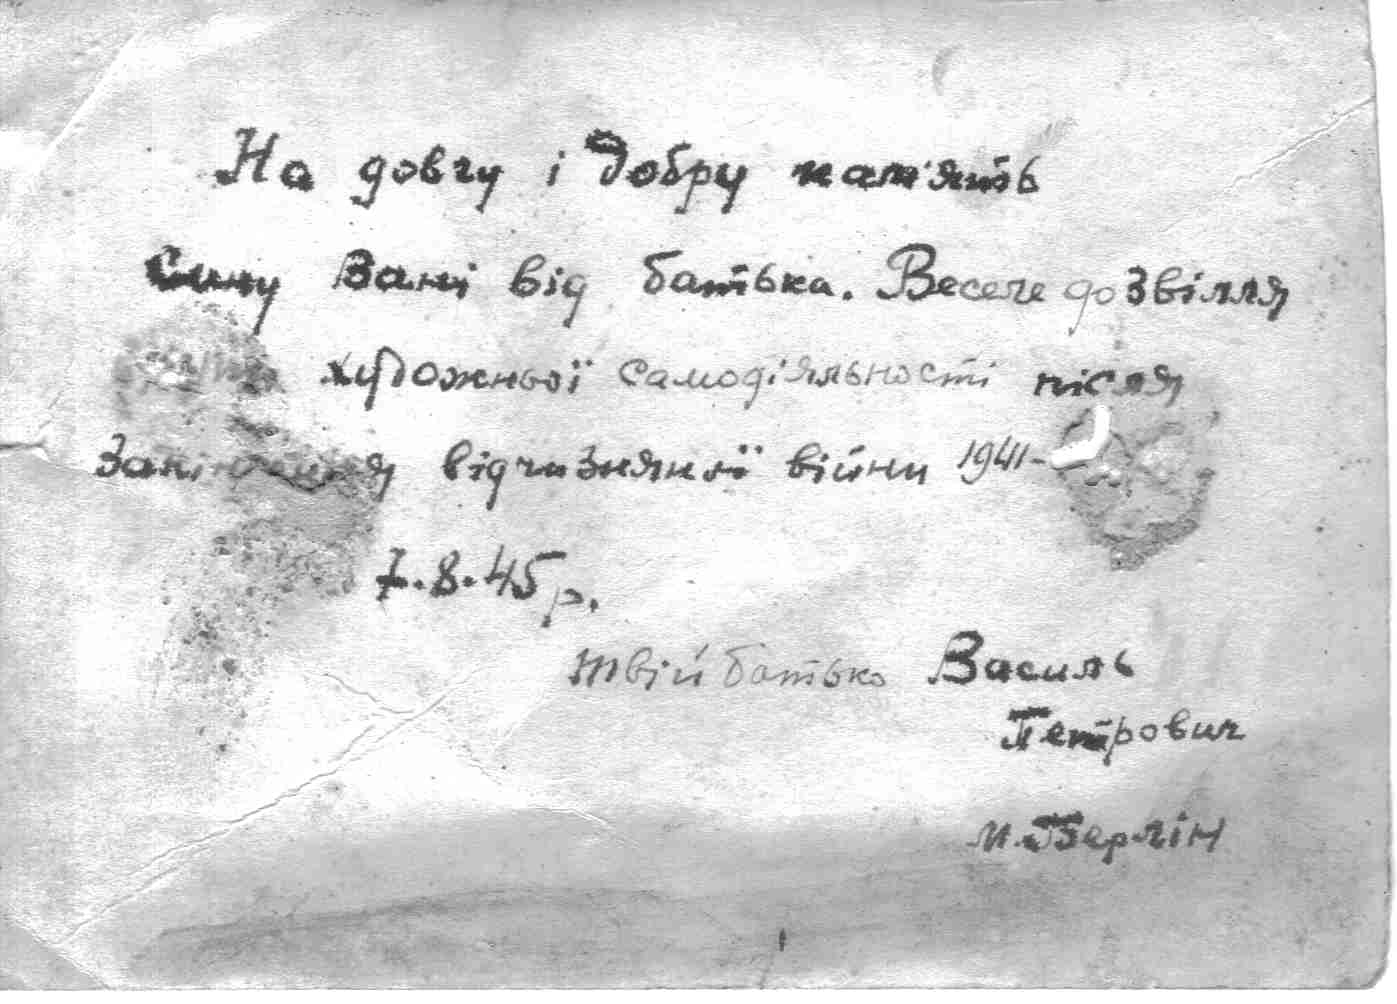 На довгу і добру пам'ять
Сину Вані від батька. Веселе дозвілля
художньої самодіяльності після
відчизняної війни 1941-
7.8.45 р.
твій батько Василь
Петрович
м. Берлін